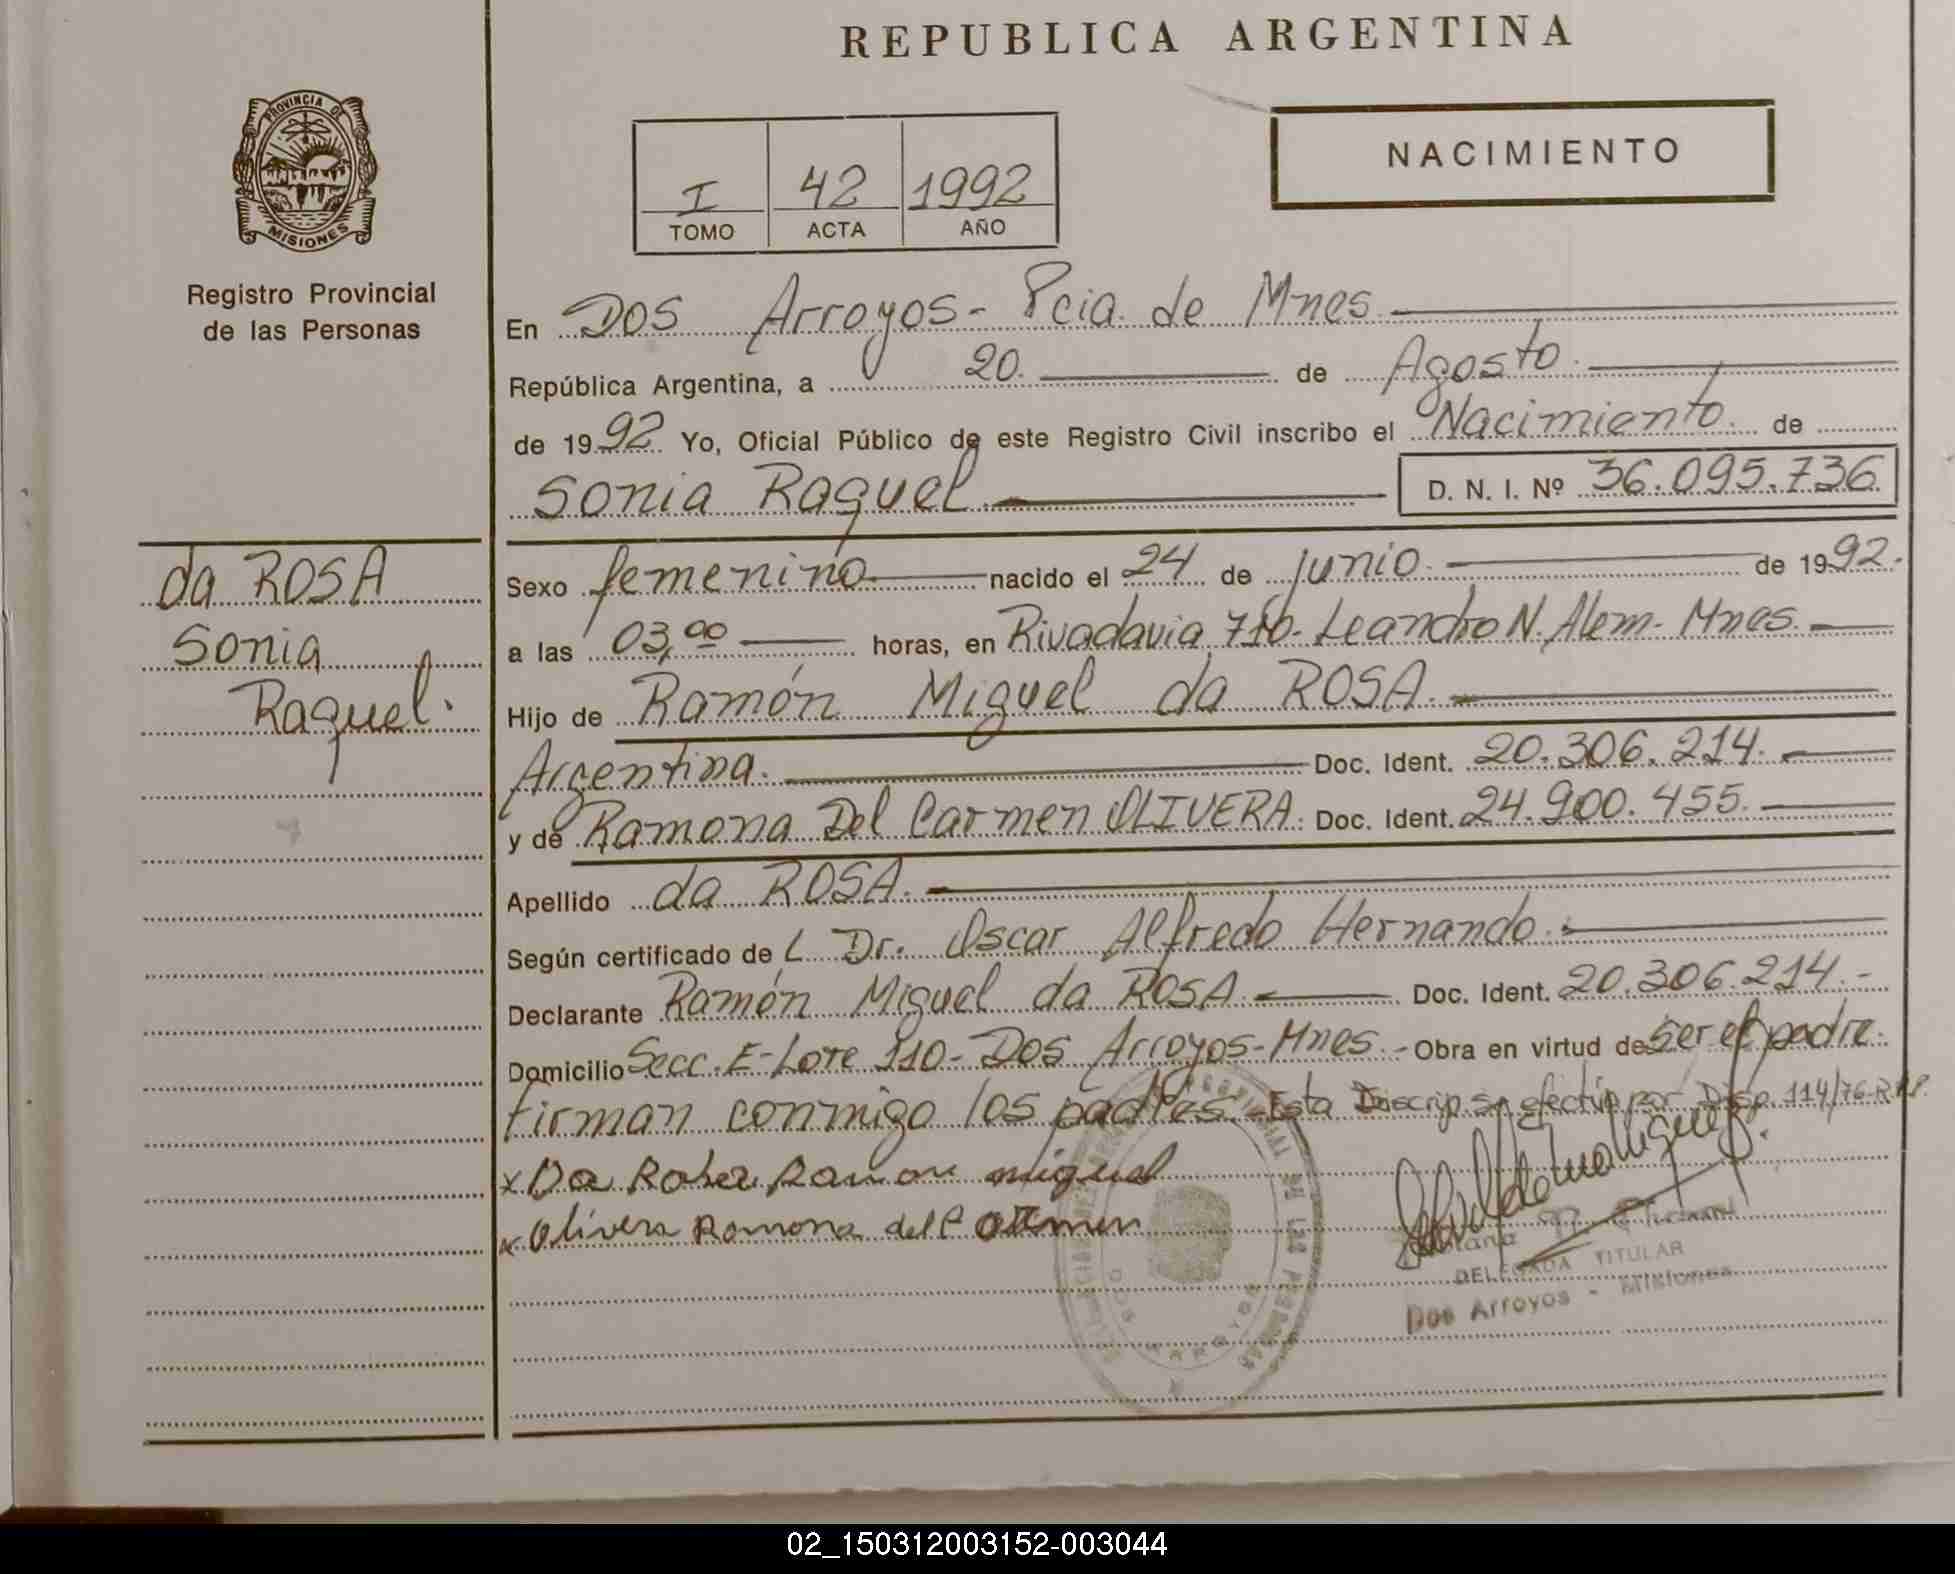 REPUBLICA ARGENTINA
PROVINCIA DE
MISIONES
Registro Provincial
de las Personas
I 42 1992
TOMO ACTA AÑO
NACIMIENTO
En Dos Arroyos - Pcia. de Mnes
República Argentina, a 20. de Agosto.
de 1992 Yo, Oficial Público de este Registro Civil inscribo el Nacimiento de
Sonia Raquel. D. N. I. Nº 36.095.736
da ROSA
Sonia
Raquel.
Sexo femenino nacido el 24 de junio. de 1992.
a las 03,00 horas, en Rivadavia 710. Leandro N. Alem - Mnes.
Hijo de Ramón Miguel da ROSA.
Argentina. Doc. Ident. 20.306.214.
y de Ramona Del Carmen OLIVERA. Doc. Ident. 24.900.455.
Apellido da ROSA.
Según certificado de L Dr. Oscar Alfredo Hernando.
Declarante Ramón Miguel da ROSA. Doc. Ident. 20.306.214.-
Domicilio Secc. E - Lote 110 - Dos Arroyos - Mnes. - Obra en virtud de ser el padre.
Firman conmigo los padres. Esta Inscrip. se efectúa por Disp. 114/76-R.P.P.
x Da Rosa Ramon miguel
x Olivera Ramona del Carmen
DELEGADA TITULAR
Dos Arroyos - Misiones
DOS ARROYOS
02_150312003152-003044